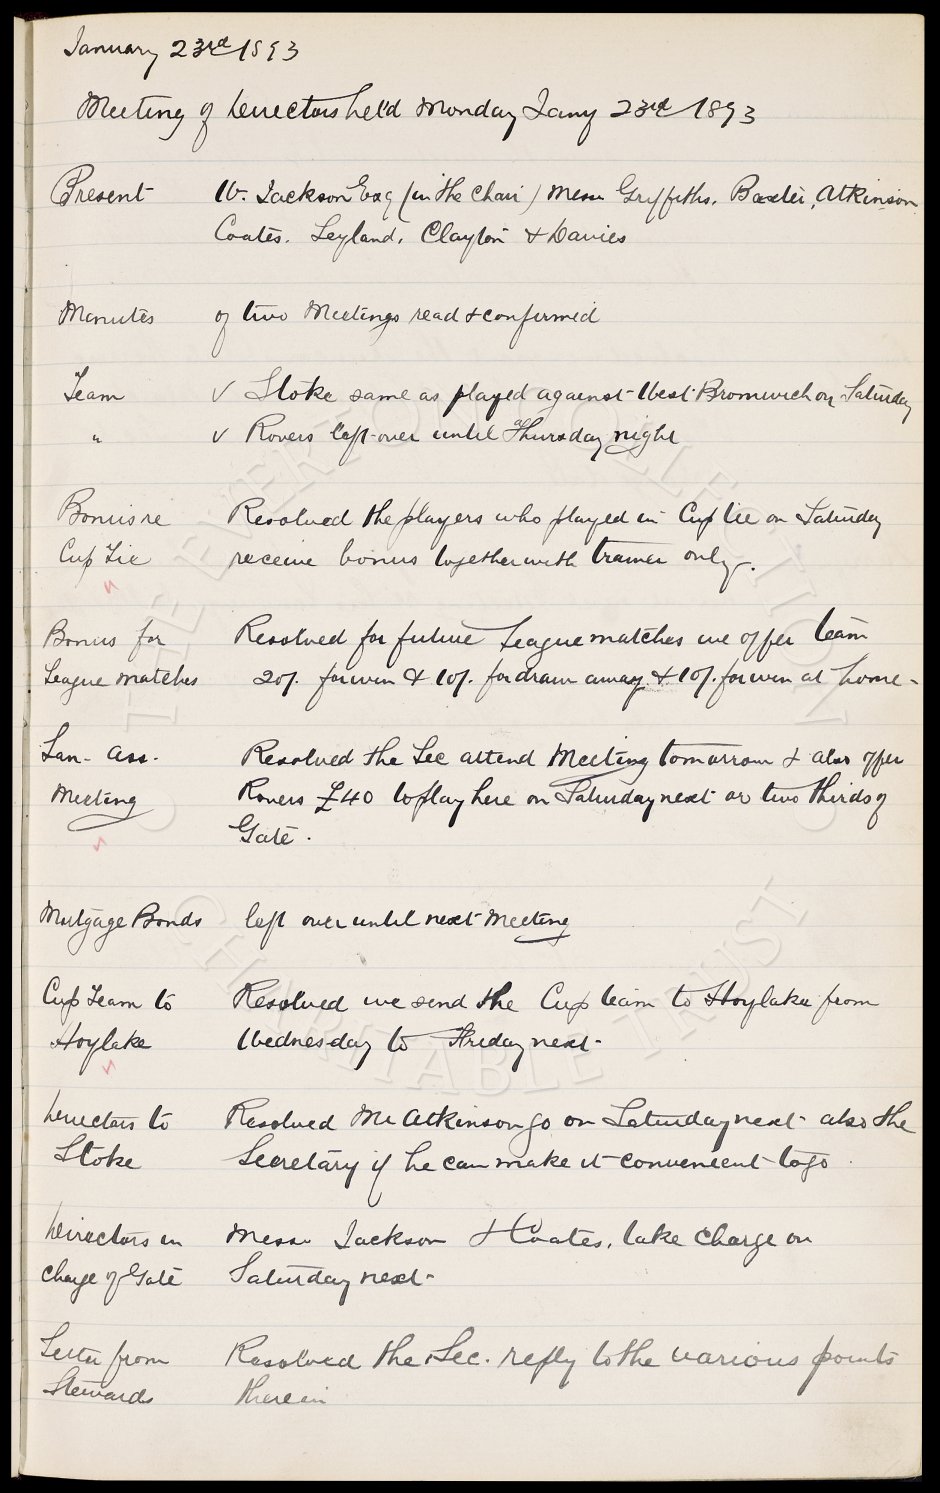 January 23rd 1893
Meeting of Directors held Monday Jany 23rd 1893
Present W. Jackson Esq (in the Chair) Messrs Griffiths, Baxter, Atkinson
Coates, Leyland, Clayton & Davies
Minutes of two Meetings read & confirmed
Team ✓ Stoke same as played against West Bromwich on Saturday
" ✓ Rovers left over until Thursday night
Bonus re Resolved the players who played in Cup tie on Saturday
Cup Tie receive bonus together with trainer only.
Bonus for Resolved for future League matches we offer team
League matches 20/. for win & 10/. for draw away & 10/. for win at home -
Lan. Ass. Resolved the Sec attend Meeting tomorrow & also offer
Meeting Rovers £40 to play here on Saturday next or two thirds of
Gate.
Mortgage Bonds left over until next Meeting
Cup Team to Resolved we send the Cup team to Hoylake from
Hoylake Wednesday to Friday next
Directors to Resolved Mr Atkinson go on Saturday next also the
Stoke Secretary if he can make it convenient to go
Directors in Messrs Jackson & Coates, take charge on
charge of Gate Saturday next
Letter from Resolved the Sec. reply to the various points
Stewards therein
THE EVERTON COLLECTION
CHARITABLE TRUST